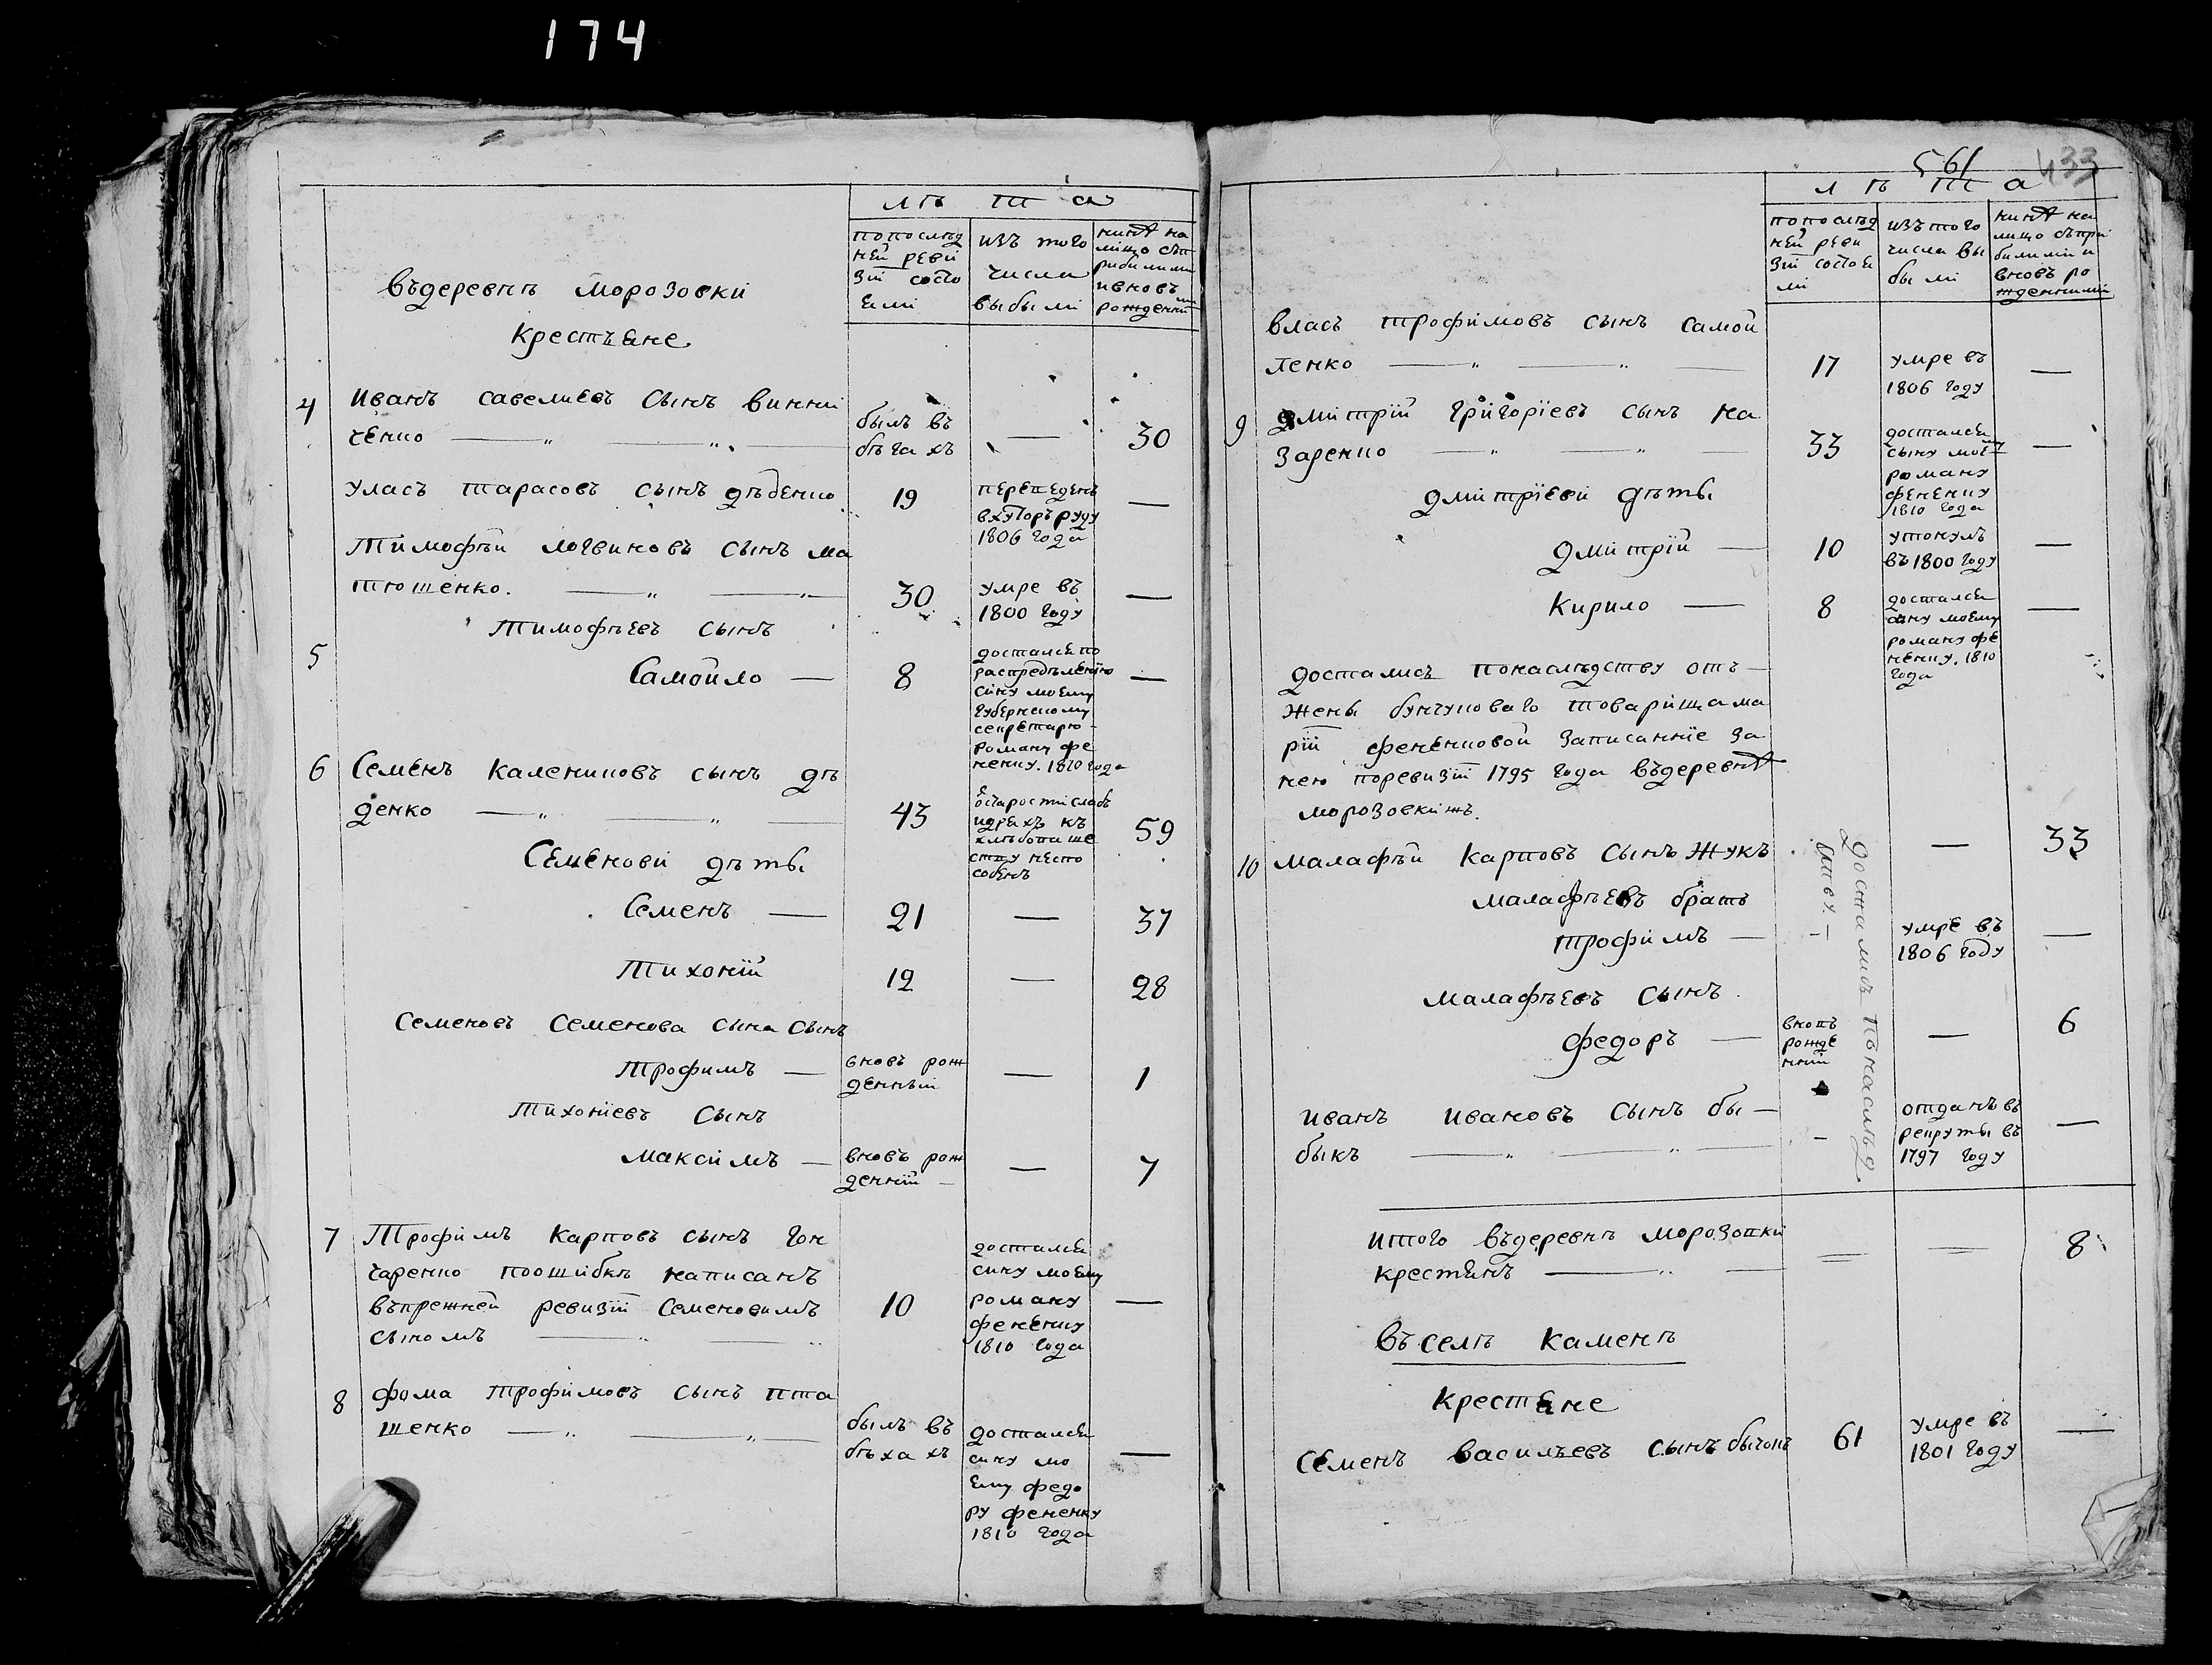 174
л ѣ т а
попослѣд
ней реви
зіи состо
ели
изъ того
числа
выбыли
нинѣ на
лицо съп
рибилими
ивновь
рожденни
ми
въдеревнѣ морозовки
крестьяне
4 Иванъ савелиевъ сынъ винни
ченко — „ — „ — былъ въ бѣгахъ — 30
Уласъ тарасовъ сынъ дѣденко 19 переведенъ
вхуторъ руду
1806 года —
Тимофѣй логвиновъ сынъ ма
тюшенко. — „ — „ — 30 умре въ
1800 году —
Тимофѣевъ сынъ
5 Самойло — 8 досталсе по
распредѣлению
сину моему
губернскому
секретарю
роману фе
ненку. 1810 года —
6 Семенъ калениковъ сынъ дѣ
денко — „ — „ — 43 остарости слабъ
идряхъ къ
хлѣбопаше
ству неспо
собенъ 59
Семенови дѣты
Семенъ — 21 — 37
Тихоній 12 — 28
Семеновъ Семенова сына сынъ
Трофимъ — вновь рож
денный — 1
Тихонїевъ сынъ
максимъ — вновь рож
денній — 7
7 Трофимъ карповъ сынъ гон
чаренко поошибкѣ написанъ
въпрежней ревизіи Семеновимъ
сыномъ — „ — „ 10 досталсе
сину моему
роману
фененку
1810 года —
8 фома трофимовъ сынъ пта
шенко — „ — „ — былъ въ
бѣхахъ досталсе
сину мо
ему федо
ру фененку
1810 года —
561 433
л ѣ т а
попослѣд
ней реви
зіи состое
ли
изътого
числа вы
были
нинѣ на
лицо съпри
билими и
вновь ро
жденними
власъ трофимовъ сынъ самой
ленко — „ — „ — 17 умре въ
1806 году —
9 дмитрій григорїевъ сынъ на
заренко — „ — „ — 33 досталсе
сыну моему
роману
фененку
1810 года —
дмитрїеви дѣты
дмитрїй — 10 утонулъ
въ 1800 году —
Кирило — 8 досталсе
сину моему
роману фе
ненку. 1810
года —
достались понаслѣдству отъ —
жены бунчуковаго товарища ма
рїи фененковой записанніе за
нею поревизіи 1795 года въдеревнѣ
морозовкижъ.
10 малафѣй карповъ сынъ жукъ — 33
досталиь понаслѣд
ству. —
малафѣевъ братъ
трофимъ — — умре въ
1806 году —
малафѣевъ сынъ
федоръ — вновь
рожде
нній — 6
иванъ ивановъ сынъ бы —
быкъ — „ — „ — — отданъ въ
рекруты въ
1797 году —
итого въдеревнѣ морозовки
крестянъ — „ — = = 8
въселѣ каменѣ
крестяне
Семенъ васильевъ сынъ бычокъ 61 умре въ
1801 году —